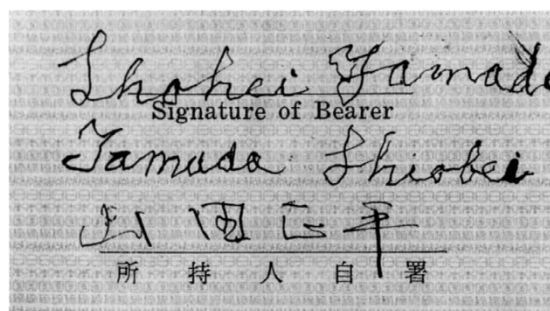 Shohei Yamada
Signature of Bearer
Yamada
山田正平
所持人自署